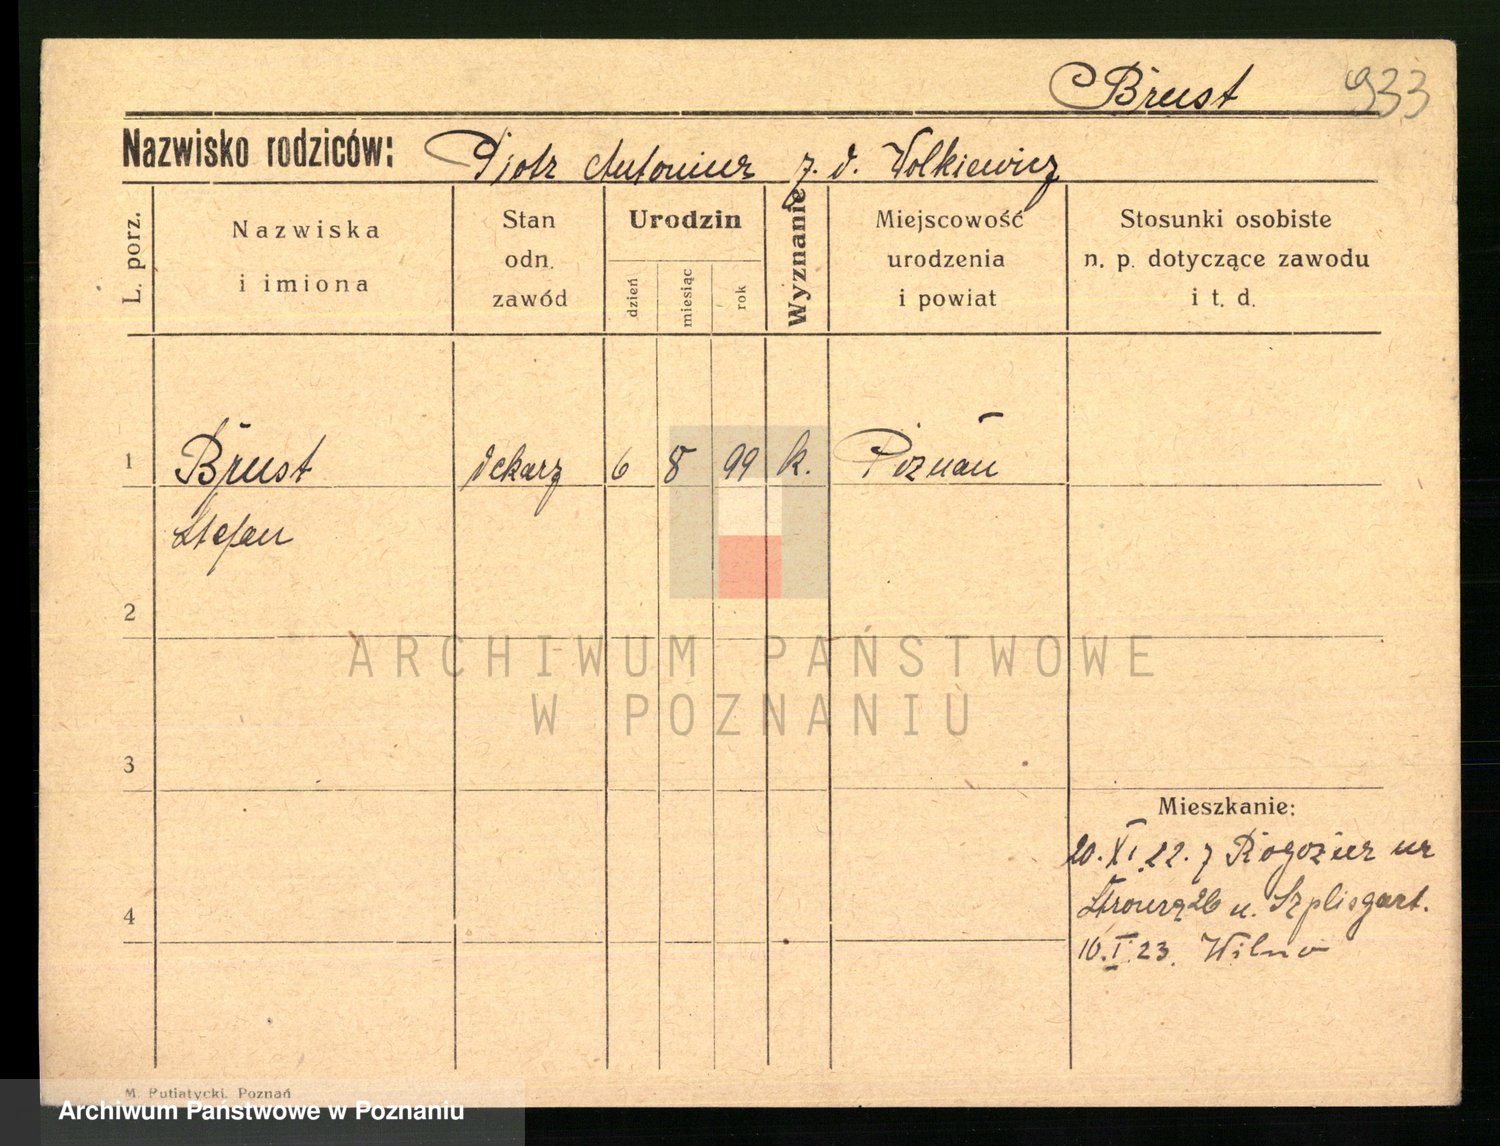 Brust 933
Nazwisko rodziców: Piotr Antonina z. d. Wolkiewicz
L. porz.
Nazwiska
i imiona
Stan
odn.
zawód
Urodzin
dzień
miesiąc
rok
Wyznanie
Miejscowość
urodzenia
i powiat
Stosunki osobiste
n. p. dotyczące zawodu
i t. d.
1 Brust dekarz 6 8 99 k. Poznań
Stefan
2
3
4
ARCHIWUM PAŃSTWOWE
W POZNANIU
Mieszkanie:
20.XI.22. z Rogoźna
26 u. Szplisgart.
10.I.23. Wilno
M. Putiatycki, Poznań
Archiwum Państwowe w Poznaniu